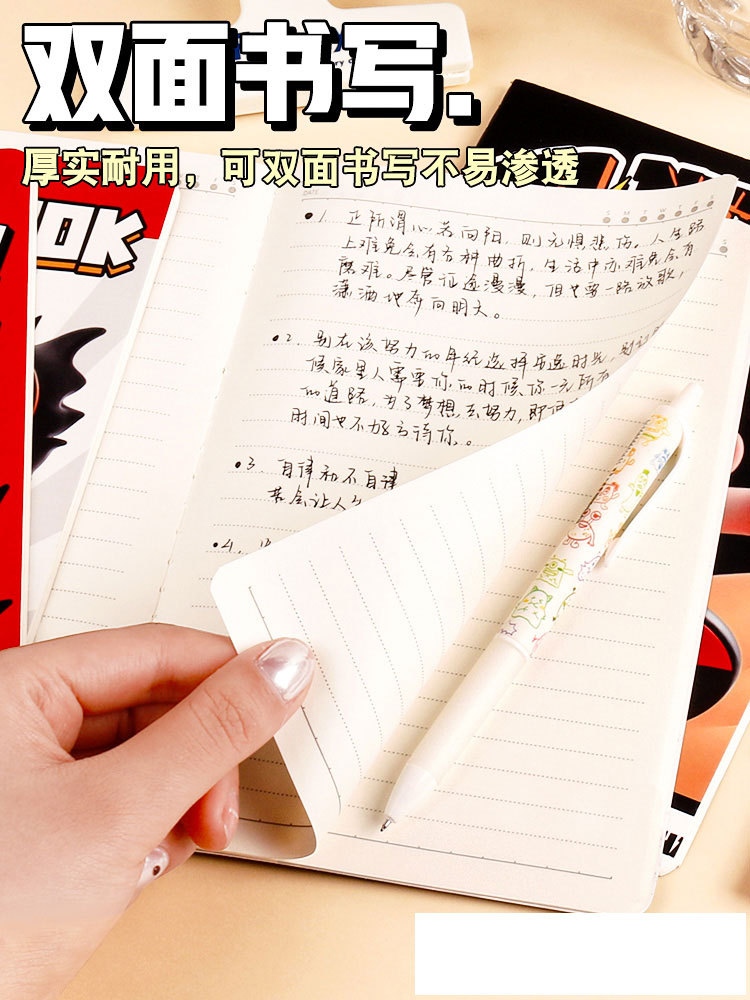 双面书写.
厚实耐用，可双面书写不易渗透
OK
DATE
S M T W T F S
•1. 正所谓心若向阳，则无惧悲伤。人生路
上难免会有各种曲折，生活中亦难免会有
磨难。尽管征途漫漫，但也要一路放歌，
潇洒地奔向明天。
•2. 别在该努力的年纪选择安逸时光，别让
候家里人需要你的时候你一无所有
的道路，为了梦想，去努力，即使
时间也不够亏待你。
•3 自律和不自律
若会让人
•4.